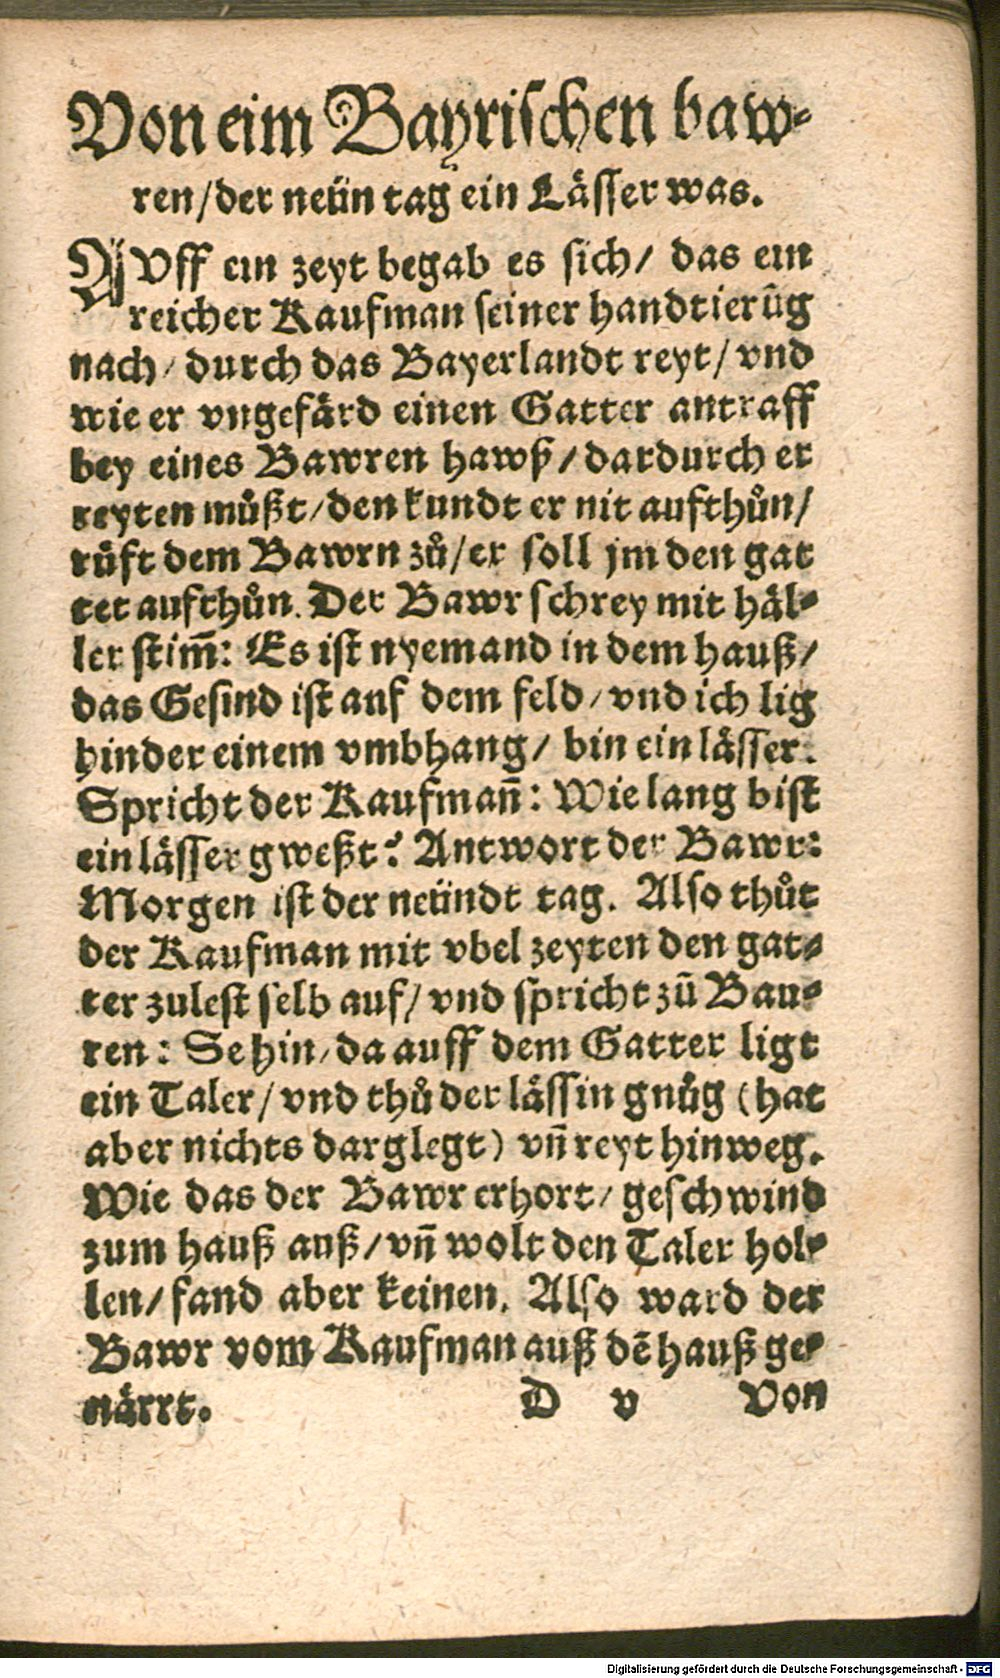 Von eim Bayrischen baw-
ren/der neün tag ein Lässer was.
AVff ein zeyt begab es sich/ das ein
reicher Kaufman seiner handtierūg
nach/ durch das Bayerlandt reyt/ vnd
wie er vngefärd einen Gatter antraff
bey eines Bawren hawß/dardurch er
reyten můßt/den kundt er nit aufthůn/
růft dem Bawrn zů/er soll jm den gat
ter aufthůn. Der Bawr schrey mit häl-
ler stim̄: Es ist nyemand in dem hauß/
das Gesind ist auf dem feld/vnd ich lig
hinder einem vmbhang/ bin ein lässer.
Spricht der Kaufman̄: Wie lang bist
ein lässer gweßt? Antwort der Bawr:
Morgen ist der neündt tag. Also thůt
der Kaufman mit vbel zeyten den gat-
ter zulest selb auf/ vnd spricht zū Bau-
ren: Se hin/da auff dem Gatter ligt
ein Taler/ vnd thů der lässin gnůg (hat
aber nichts darglegt) vn̄ reyt hinweg.
Wie das der Bawr erhort/ geschwind
zum hauß auß/vn̄ wolt den Taler hol-
len/fand aber keinen. Also ward der
Bawr vom Kaufman auß dē hauß ge-
närrt. D v Von
Digitalisierung gefördert durch die Deutsche Forschungsgemeinschaft - DFG